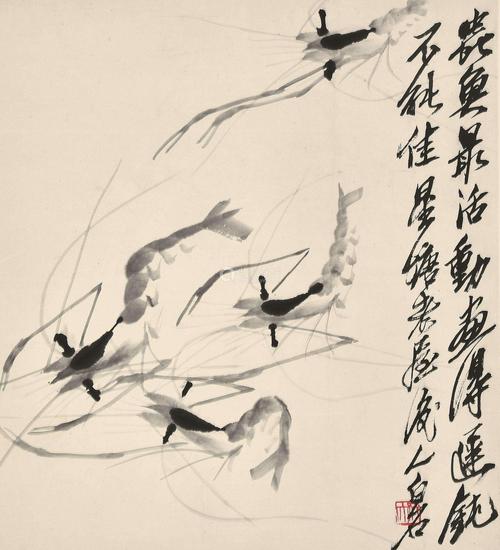 蟲魚最活動畫得遲鈍
不能佳星塘老屋後人白石